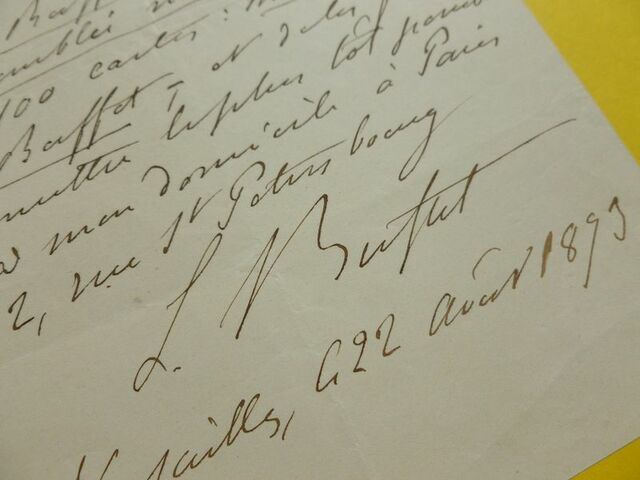 100 cartes :
Buffet - et de les
mettre le plus tôt possi
à mon domicile à Paris
2, rue St Petersbourg
L. Buffet
Versailles, le 22 août 1893